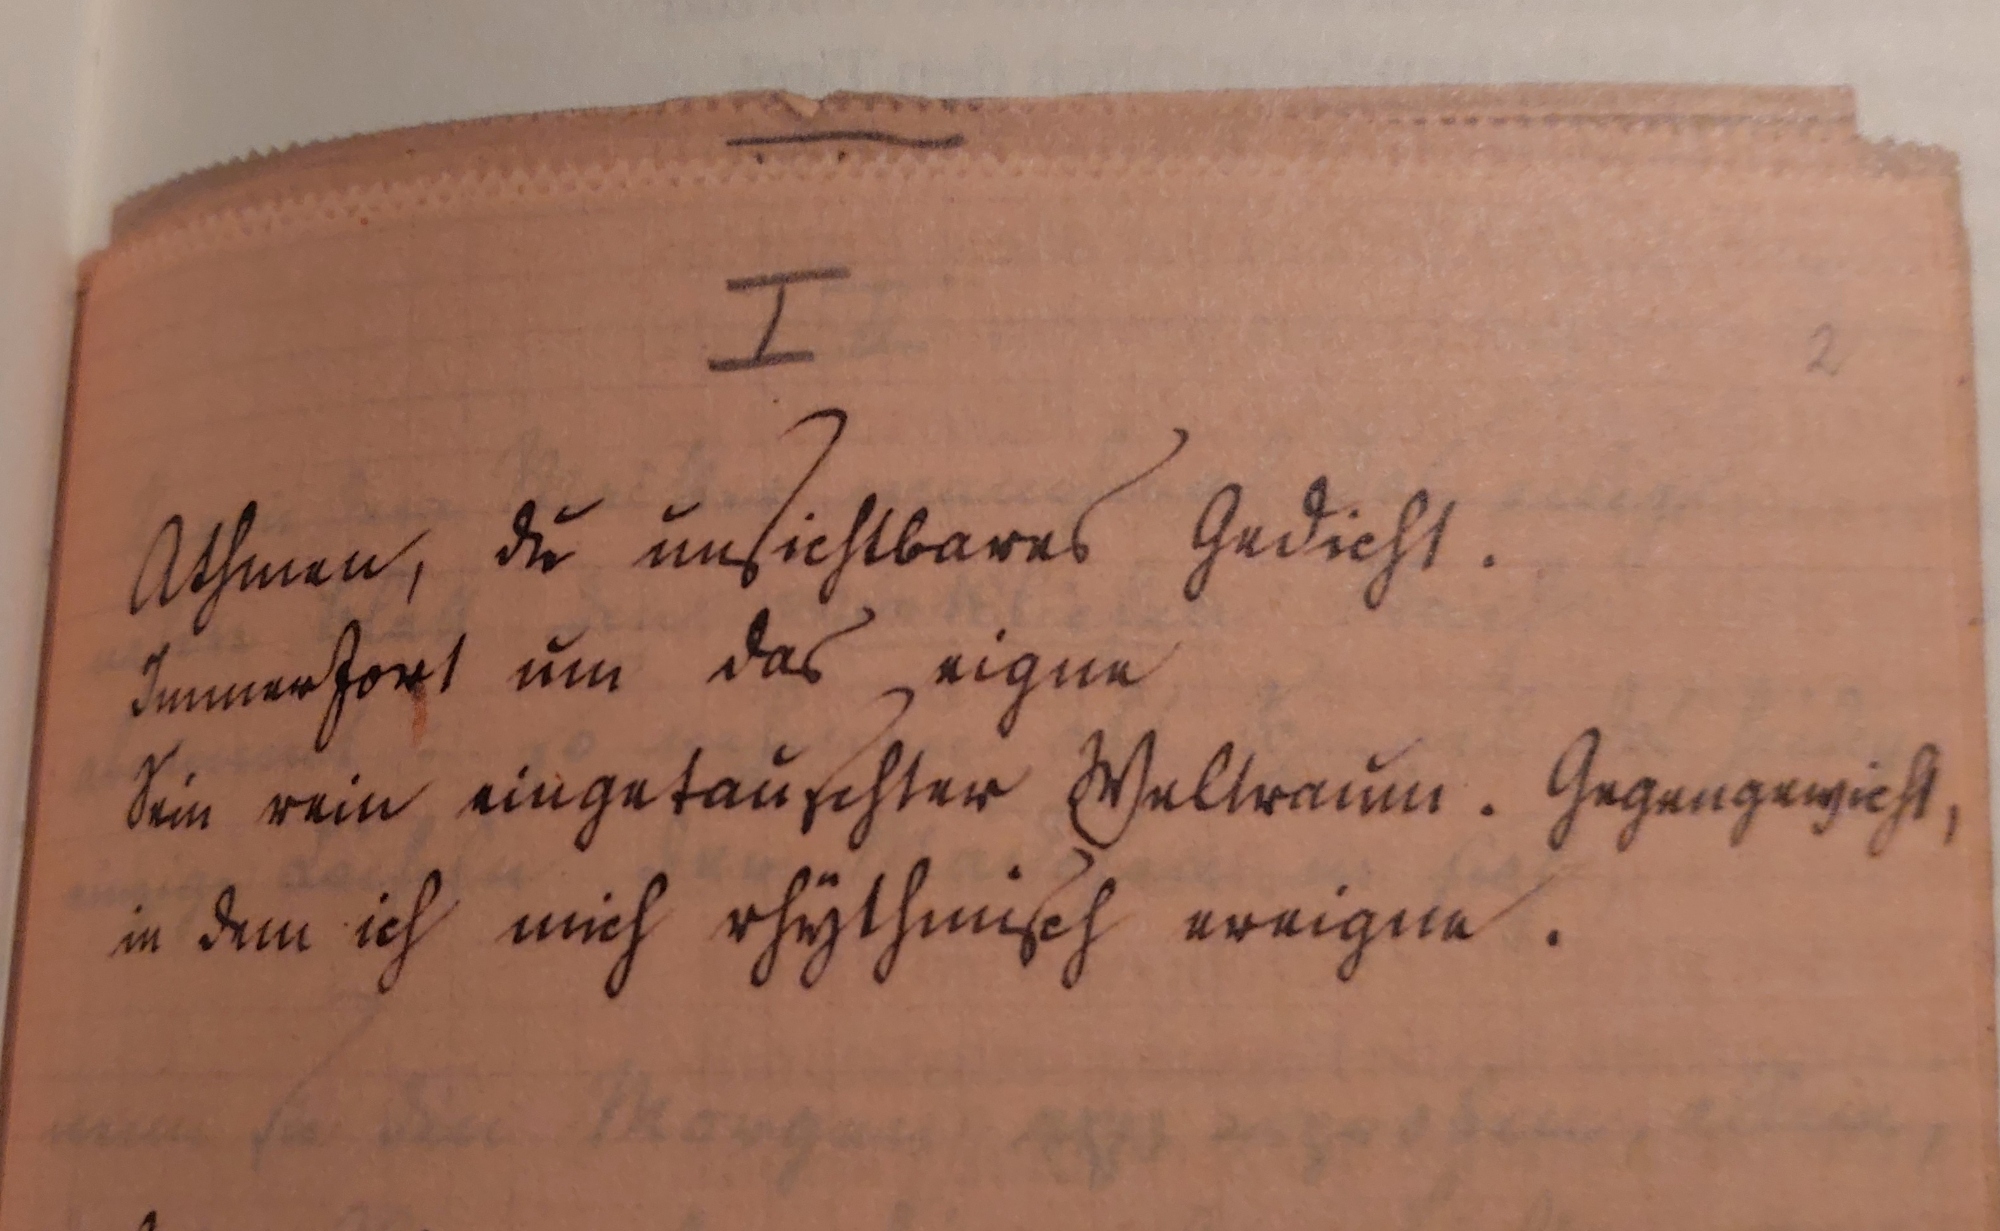 I
2
Athmen, du unsichtbares Gedicht.
Immerfort um das eigne
Sein rein eingetauschter Weltraum. Gegengewicht,
in dem ich mich rhÿthmisch ereigne.